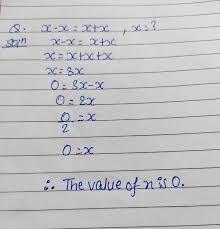 Q. x-x = x+x , x=?
Soln x-x = x+x
x = x+x+x
x = 3x
0 = 3x-x
0 = 2x
0/2 = x
0 = x
∴ The value of x is 0.